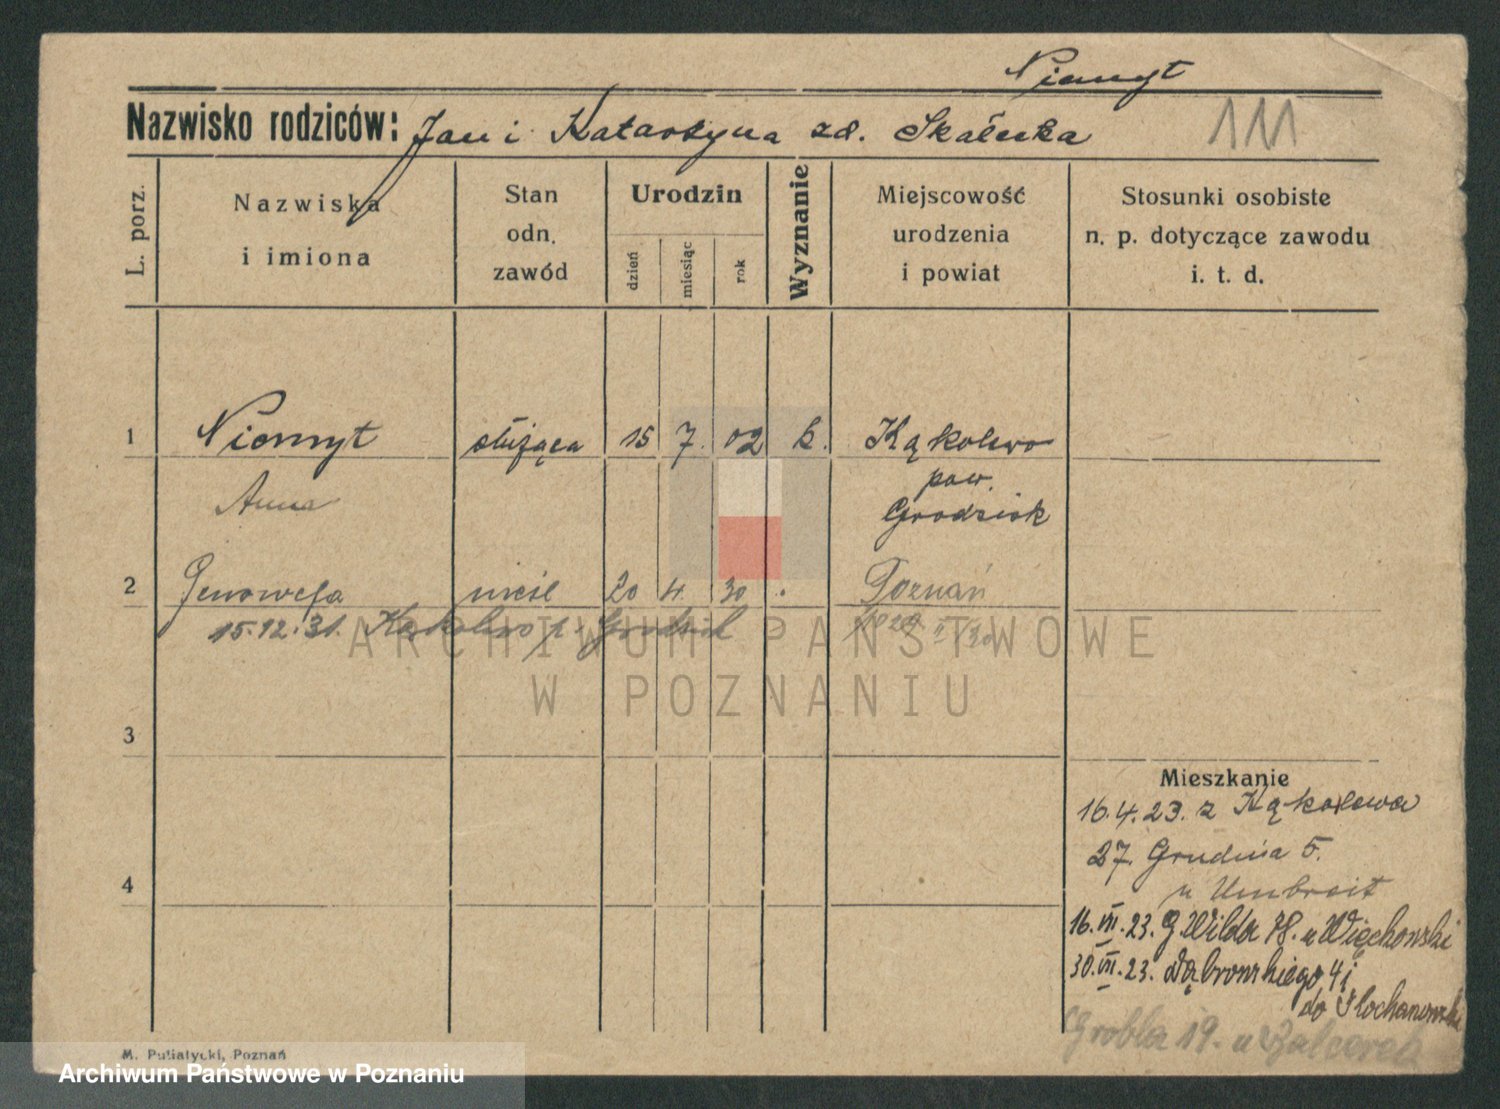 Niemyt
Nazwisko rodziców: Jan i Katarzyna zd. Skałecka
111
L. porz.
Nazwiska
i imiona
Stan
odn.
zawód
Urodzin
dzień
miesiąc
rok
Wyznanie
Miejscowość
urodzenia
i powiat
Stosunki osobiste
n. p. dotyczące zawodu
i. t. d.
1 Niemyt służąca 15 7. 02 k. Kąkolewo
pow.
Anna Grodzisk
2 Genowefa nieśl 20 4. 30 Poznań
15.12.31. Kąkolewo p. Grodzisk
ARCHIWUM PAŃSTWOWE
W POZNANIU
3
Mieszkanie
16.4.23. z Kąkolewa
27. Grudnia 5.
4
u Umbreit
16.VII.23. G. Wilda 78. u Więchowski
30.VII.23. Dąbrowskiego 41
do Kochanowski
Grobla 19. u
M. Putiatycki, Poznań
Archiwum Państwowe w Poznaniu